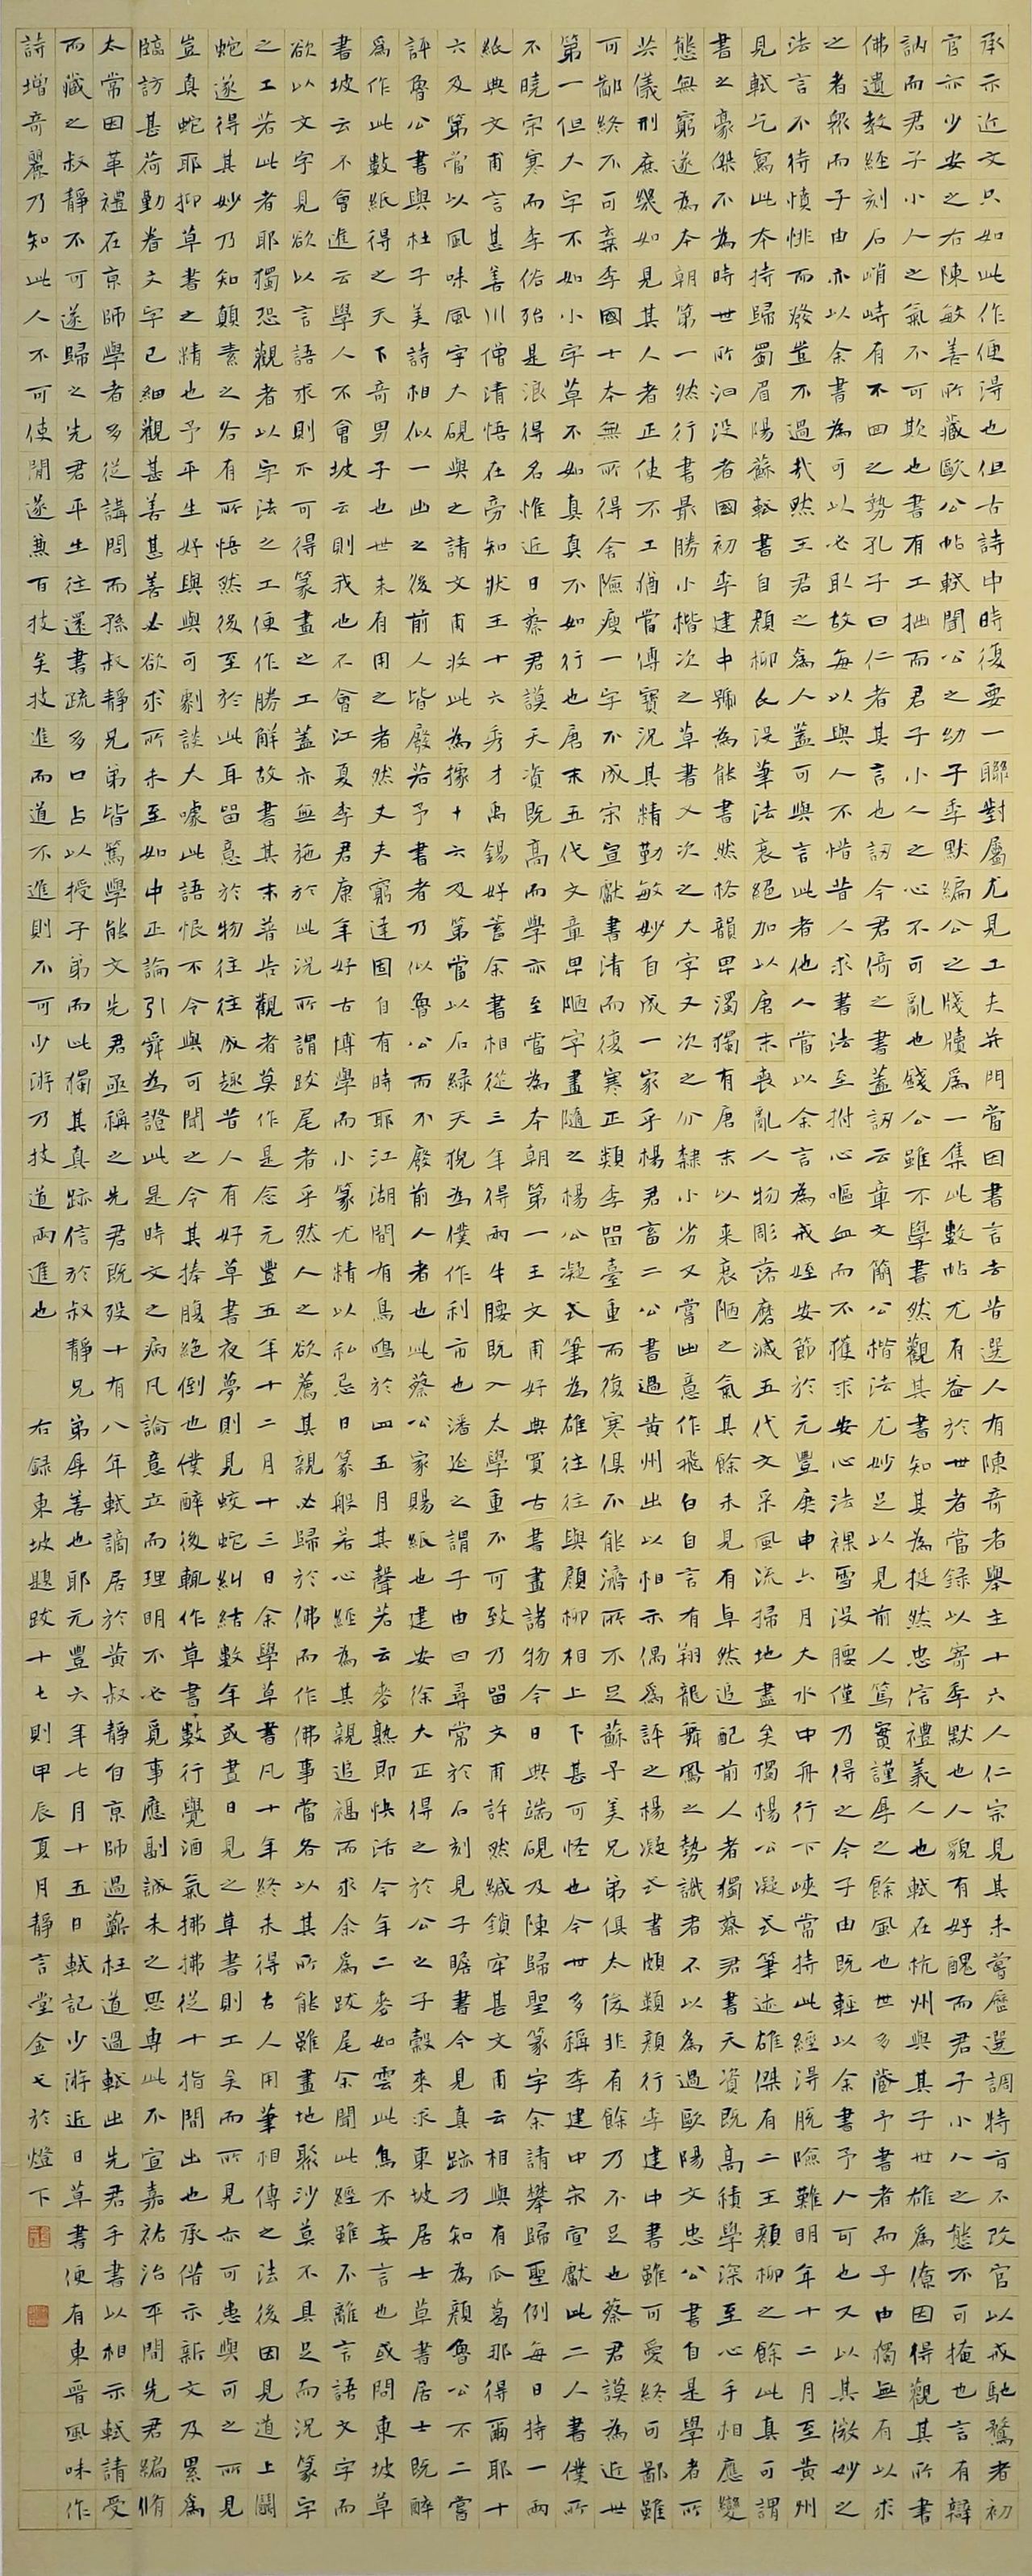 承示近文只如此作便得也但古詩中時復要一聯對屬尤見工夫并門當因書言去昔選人有陳奇者舉主十六人仁宗見其未嘗歷選調特旨不改官以戒馳騖者初
官亦少安之右陳敏善所藏歐公帖軾聞公之幼子季默編公之牋牘為一集此數帖尤有益於世者當錄以寄季默也人貌有好醜而君子小人之態不可掩也言有辯
訥而君子小人之氣不可欺也書有工拙而君子小人之心不可亂也錢公雖不學書然觀其書知其為挺然忠信禮義人也軾在杭州與其子世雄為僚因得觀其所書
佛遺教經刻石峭峙有不回之勢孔子曰仁者其言也訒今君倚之書蓋訒云章文簡公楷法尤妙足以見前人篤實謹厚之餘風也世多藏予書者而子由獨無有以求
之者眾而子由亦以余書為可以必取故每以與人不惜昔人求書法至拊心嘔血而不獲求安心法裸雪沒腰僅乃得之今子由既輕以余書予人可也又以其微妙之
法言不待憤悱而發豈不過哉然王君之為人蓋可與言此者他人當以余言為戒姪安節於元豐庚申六月大水中舟行下峽常持此經得脫險難明年十二月至黃州
見軾乞寫此本持歸蜀眉陽蘇軾書自顏柳氏沒筆法衰絕加以唐末喪亂人物彫落磨滅五代文采風流掃地盡矣獨楊公凝式筆迹雄傑有二王顏柳之餘此真可謂
書之豪傑不為時世所汩沒者國初李建中號為能書然格韻卑濁獨有唐末以來衰陋之氣其餘未見有卓然追配前人者獨蔡君書天資既高積學深至心手相應變
態無窮遂為本朝第一然行書最勝小楷次之草書又次之大字又次之分隸小劣又嘗出意作飛白自言有翔龍舞鳳之勢識者不以為過歐陽文忠公書自是學者所
共儀刑庶幾如見其人者正使不工猶當傳寶況其精勤敏妙自成一家乎楊君畜二公書過黃州出以相示偶為評之楊凝式書頗類顏行李建中書雖可愛終可鄙雖
可鄙終不可棄李國士本無所得舍險瘦一字不成宋宣獻書清而復寒正類李留臺重而復寒俱不能濟所不足蘇子美兄弟俱太俊非有餘乃不足也蔡君謨為近世
第一但大字不如小字草不如真真不如行也唐末五代文章卑陋字畫隨之楊公凝式筆為雄往往與顏柳相上下甚可怪也今世多稱李建中宋宣獻此二人書僕所
不曉宋寒而李俗殆是浪得名惟近日蔡君謨天資既高而學亦至當為本朝第一王文甫好典買古書畫諸物今日典端硯及陳歸聖篆字余請攀歸聖例每日持一兩
紙典文甫言甚善川僧清悟在旁知狀王十六秀才禹錫好蓄余書相從三年得兩牛腰既入太學重不可致乃留文甫許然緘鎖牢甚文甫云相與有瓜葛那得爾耶十
六及第嘗以風味風字大硯與之請文甫收此為據十六及第當以石綠天猊為僕作利市也潘延之謂子由曰尋常於石刻見子瞻書今見真跡乃知為顏魯公不二嘗
評魯公書與杜子美詩相似一出之後前人皆廢若予書者乃似魯公而不廢前人者也此蔡公家賜紙也建安徐大正得之於公之子穀來求東坡居士草書居士既醉
為作此數紙得之天下奇男子也世未有用之者然丈夫窮達固自有時耶江湖間有鳥鳴於四五月其聲若云麥熟即快活今年二麥如雲此鳥不妄言也或問東坡草
書坡云不會進云學人不會坡云則我也不會江夏李君康年好古博學而小篆尤精以私忌日篆般若心經為其親追福而求余為跋尾余聞此經雖不離言語文字而
欲以文字見欲以言語求則不可得篆畫之工蓋亦無施於此況所謂跋尾者乎然人之欲薦其親必歸於佛而作佛事當各以其所能雖畫地聚沙莫不具足而況篆字
之工若此者耶獨恐觀者以字法之工便作勝解故書其末普告觀者莫作是念元豐五年十二月十三日余學草書凡十年終未得古人用筆相傳之法後因見道上鬭
蛇遂得其妙乃知顛素之各有所悟然後至於此耳留意於物往往成趣昔人有好草書夜夢則見蛟蛇糾結數年或晝日見之草書則工矣而所見亦可患與可之所見
豈真蛇耶抑草書之精也予平生好與與可劇談大噱此語恨不令與可聞之今其捧腹絕倒也僕醉後輒作草書數行覺酒氣拂拂從十指間出也承借示新文及累為
臨訪甚荷勤眷文字已細觀甚善甚善必欲求所未至如中正論引舜為證此是時文之病凡論意立而理明不必覓事應副誠未之思專此不宣嘉祐治平間先君編脩
太常因革禮在京師學者多從講問而孫叔靜兄弟皆篤學能文先君亟稱之先君既歿十有八年軾謫居於黃叔靜自京師過蘄枉道過軾出先君手書以相示軾請受
而藏之叔靜不可遂歸之先君平生往還書疏多口占以授子弟而此獨其真跡信於叔靜兄弟厚善也耶元豐六年七月十五日軾記少游近日草書便有東晉風味作
詩增奇麗乃知此人不可使閒遂兼百技矣技進而道不進則不可少游乃技道兩進也 右録東坡題跋十七則甲辰夏月靜言堂金弋於燈下